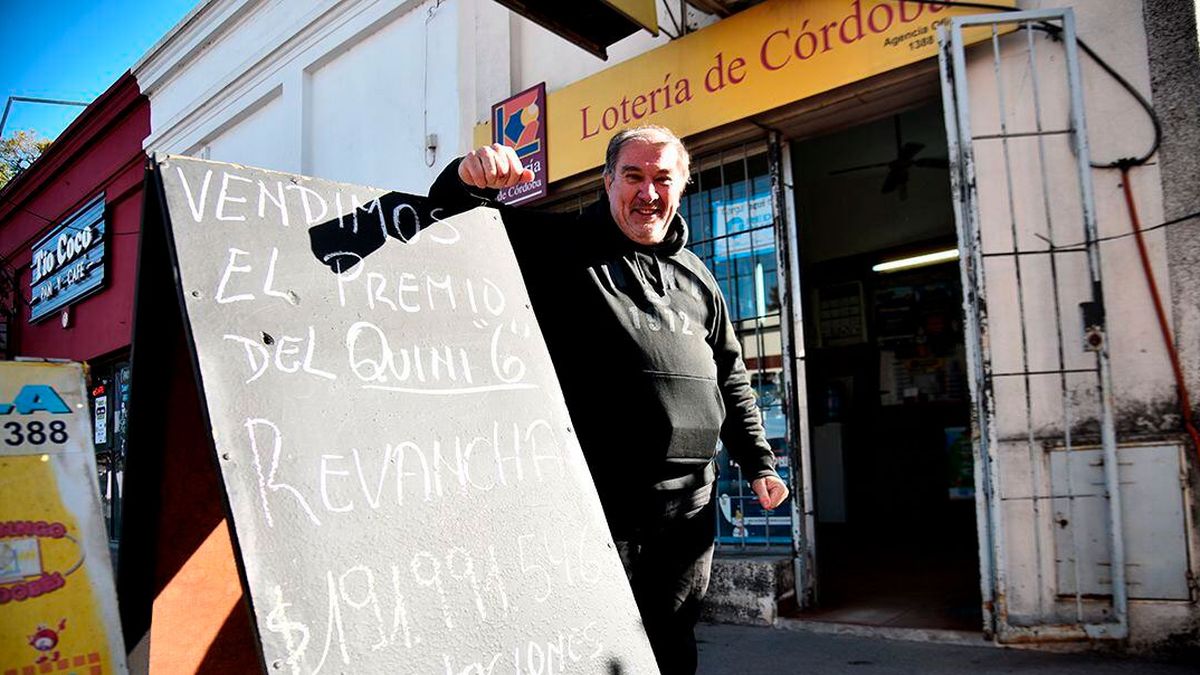 Lotería de Córdoba
Agencia Ofi
1388
de Córdoba
Tío Coco
PAN Y CAFÉ
VENDIMOS
EL PREMIO
DEL QUINI "6"
REVANCHA
$191.991.546
1912
LA
1388